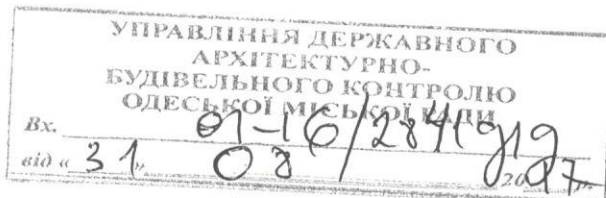 УПРАВЛІННЯ ДЕРЖАВНОГО
АРХІТЕКТУРНО-
БУДІВЕЛЬНОГО КОНТРОЛЮ
ОДЕСЬКОЇ МІСЬКОЇ РАДИ
Вх. 01-16/
від « 31 » 08 2017